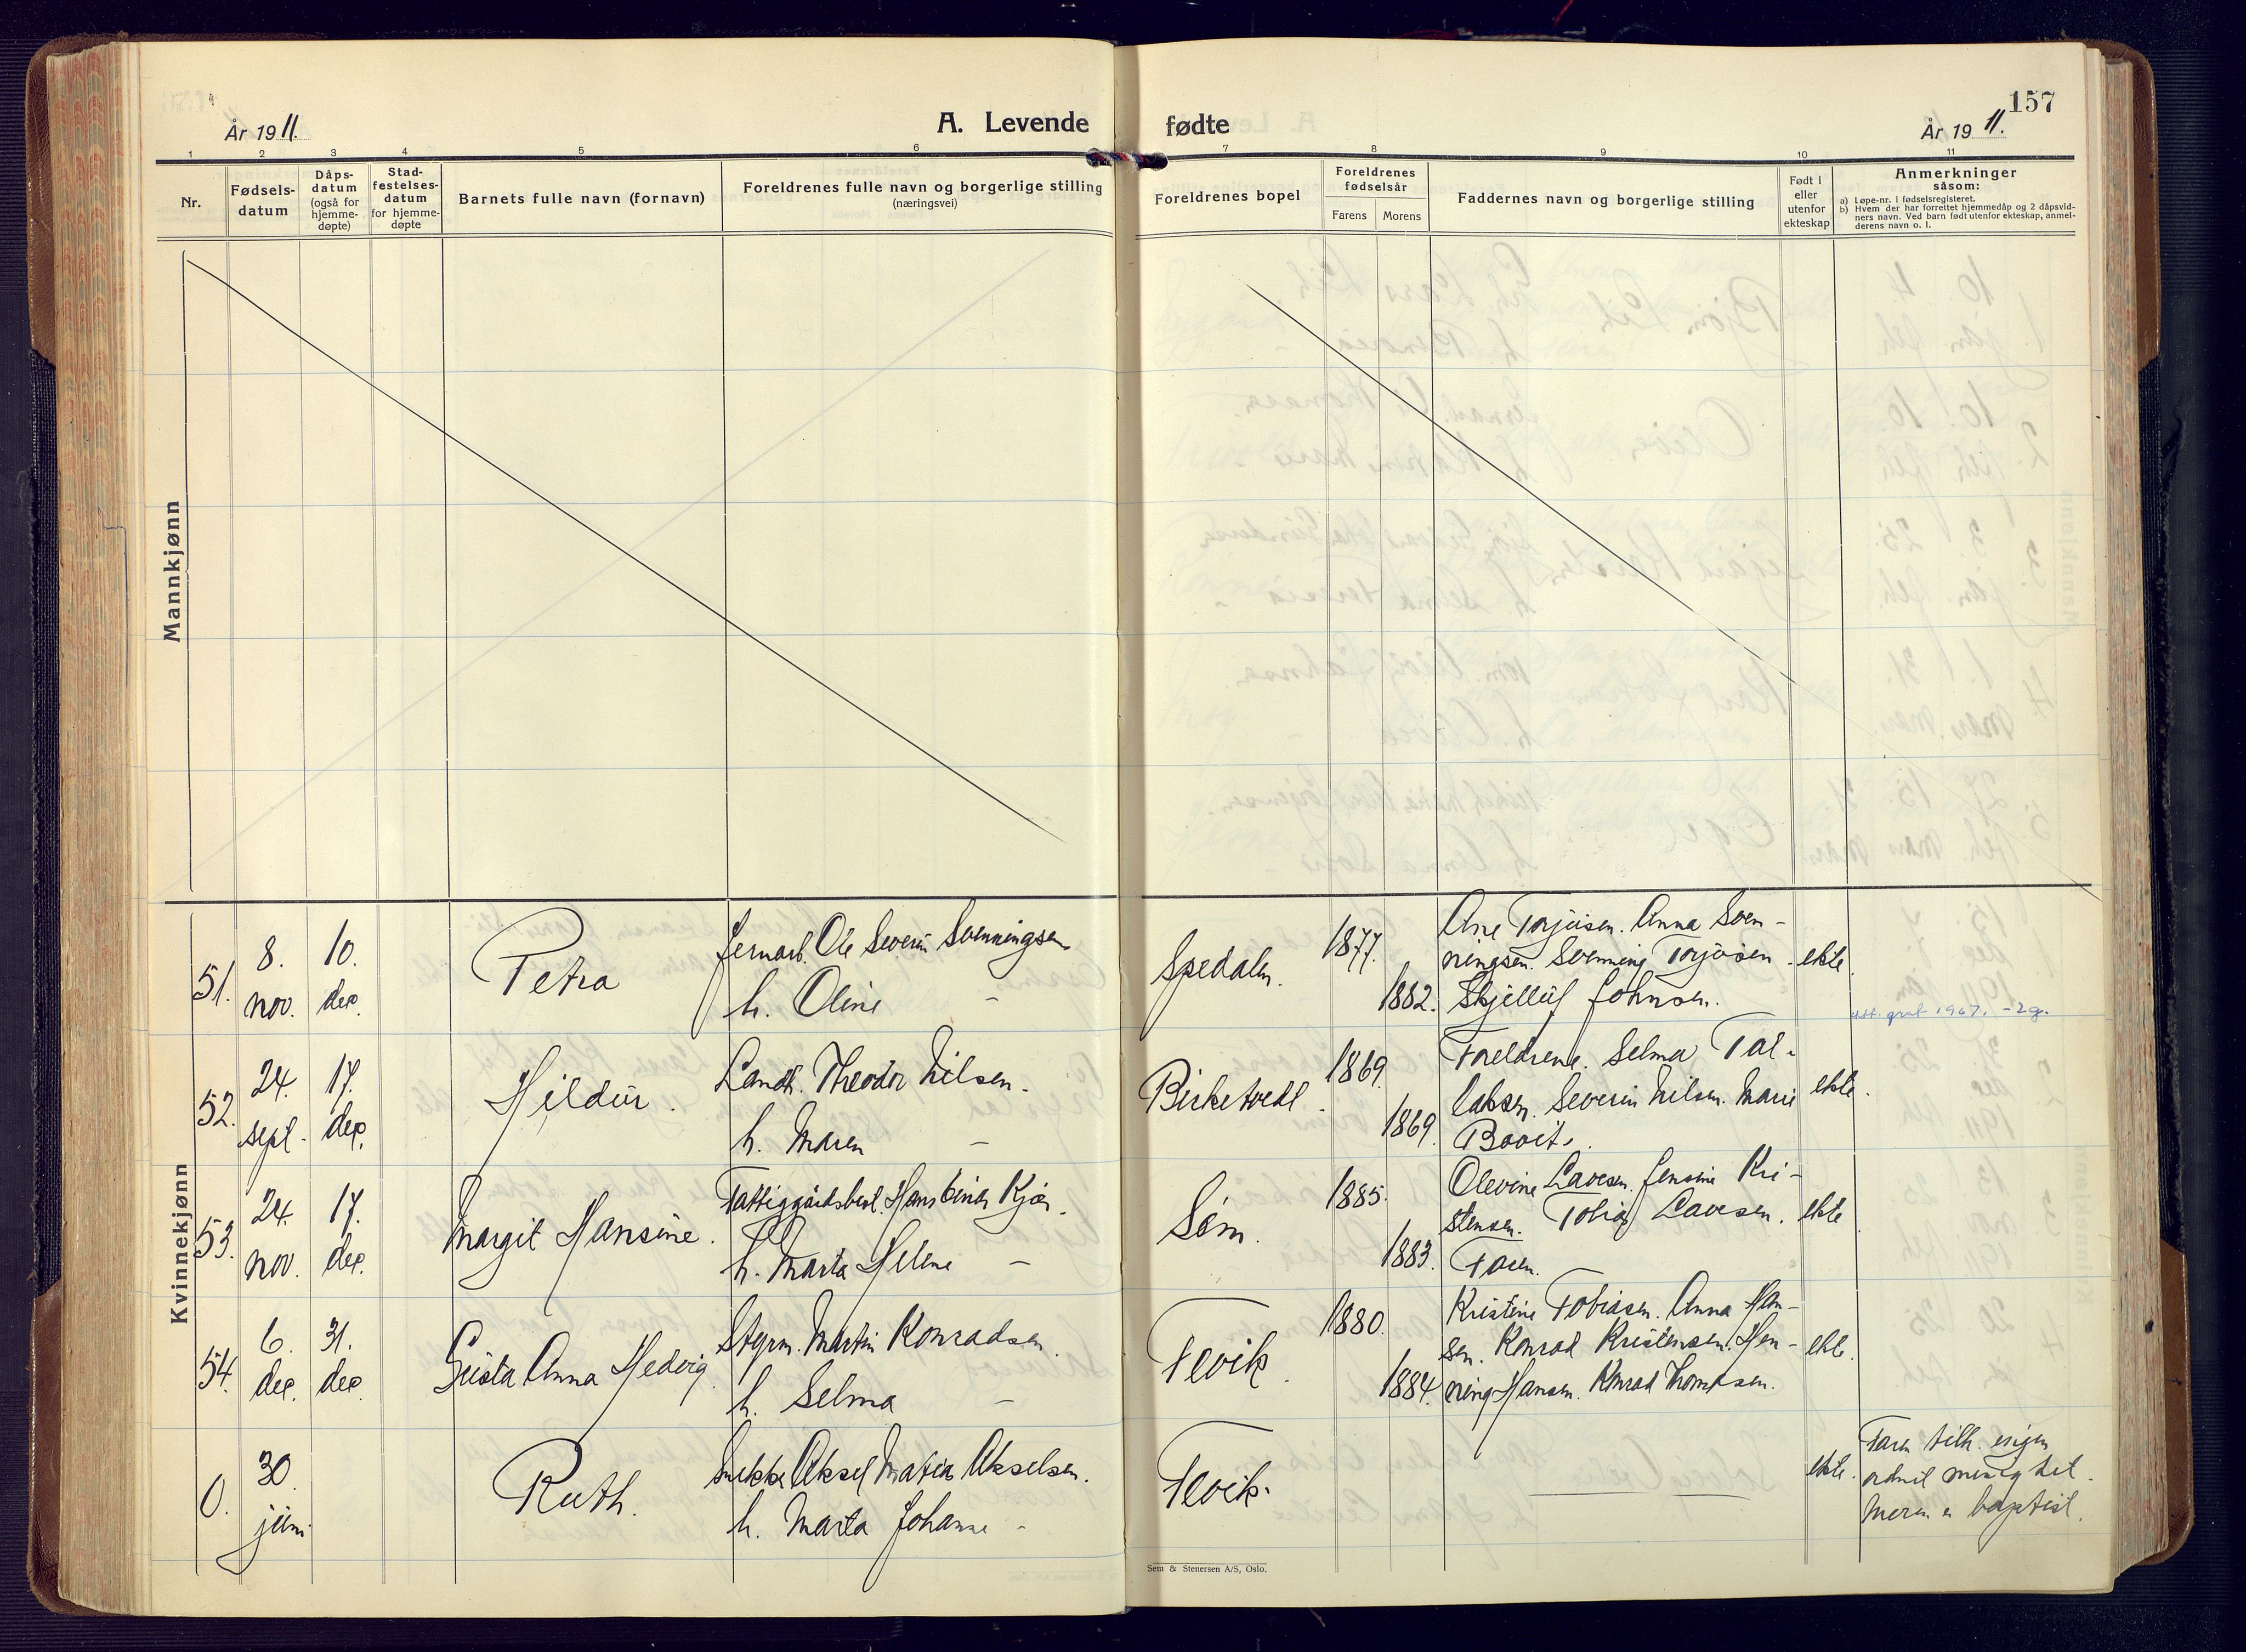 År 1911.
A. Levende
fødte
157
År 1911.
1 2 3 4 5 6 7 8 9 10 11
Nr.
Fødsels-
datum
Dåps-
datum
(også for
hjemme-
døpte)
Stad-
festelses-
datum
for hjemme-
døpte
Barnets fulle navn (fornavn)
Foreldrenes fulle navn og borgerlige stilling
(næringsvei)
Foreldrenes bopel
Foreldrenes
fødselsår
Farens
Morens
Faddernes navn og borgerlige stilling
Født i
eller
utenfor
ekteskap
Anmerkninger
såsom:
a) Løpe-nr. i fødselsregisteret.
b) Hvem der har forrettet hjemmedåp og 2 dåpsvid-
ners navn. Ved barn født utenfor ekteskap, anmel-
derens navn o. l.
Mannkjønn
Kvinnekjønn
51.
8.
nov.
10.
dec.
Petra
Jernarb. Ole Severin Svenningsen
h. Oline -
Spedalen.
1877.
1882.
Ane Torjusen. Anna Sven-
ningsen. Svenning Torjusen.
Skjelluf Johnsen.
ekte.
1967.
52.
24.
sept.
17.
dec.
Hildur.
Landh. Theodor Nilsen.
h. Maren -
Birketvedt.
1869.
1869.
Foreldrene. Selma Tal-
laksen. Severin Nilsen. Marie
ekte.
53.
24.
nov.
17.
dec.
Margit Hansine.
Fattiggårdsbest. Hans Einar Kjær.
h. Marta Helene -
Søm.
1885.
1883.
Olevine Lavesen. Jensine Kri-
stensen. Tobias Lavesen.
Faren.
ekte.
54.
6.
dec.
31.
dec.
Gusta Anna Hedvig.
Styrm. Martin Konradsen.
h. Selma -
Fevik.
1880.
1884.
Kristine Tobiasen. Anna Han-
sen. Konrad Kristensen. Hen-
ning Hansen. Konrad Thomsen.
ekte.
0.
30.
juni.
Ruth.
Snekker Aksel Matias Akselsen.
h. Marta Johanne -
Fevik.
ekte.
Faren tilh. ingen
ordnet menighet.
Moren er baptist.
Sem & Stenersen A/S, Oslo.